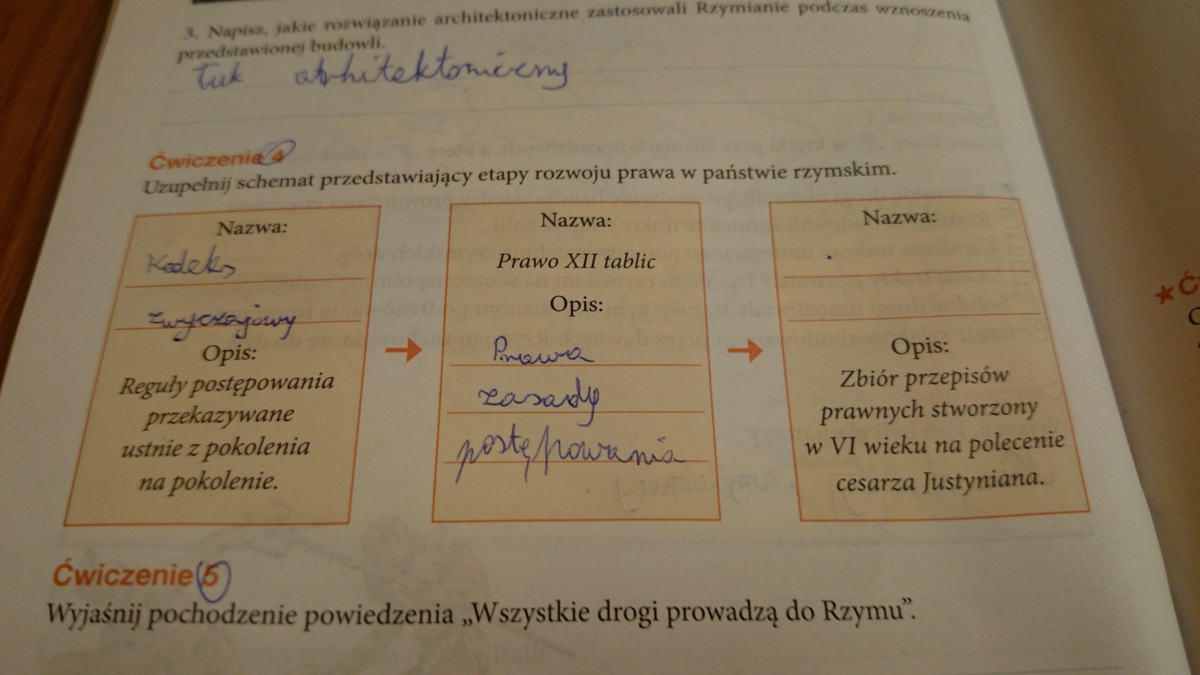 3. Napisz, jakie rozwiązanie architektoniczne zastosowali Rzymianie podczas wznoszenia
przedstawionej budowli.
Łuk architektoniczny
Ćwiczenie 4
Uzupełnij schemat przedstawiający etapy rozwoju prawa w państwie rzymskim.
Nazwa:
Kodeks
zwyczajowy
Opis:
Reguły postępowania
przekazywane
ustnie z pokolenia
na pokolenie.
Nazwa:
Prawo XII tablic
Opis:
Prawa
zasady
postępowania
Nazwa:
Opis:
Zbiór przepisów
prawnych stworzony
w VI wieku na polecenie
cesarza Justyniana.
Ćwiczenie 5
Wyjaśnij pochodzenie powiedzenia „Wszystkie drogi prowadzą do Rzymu”.